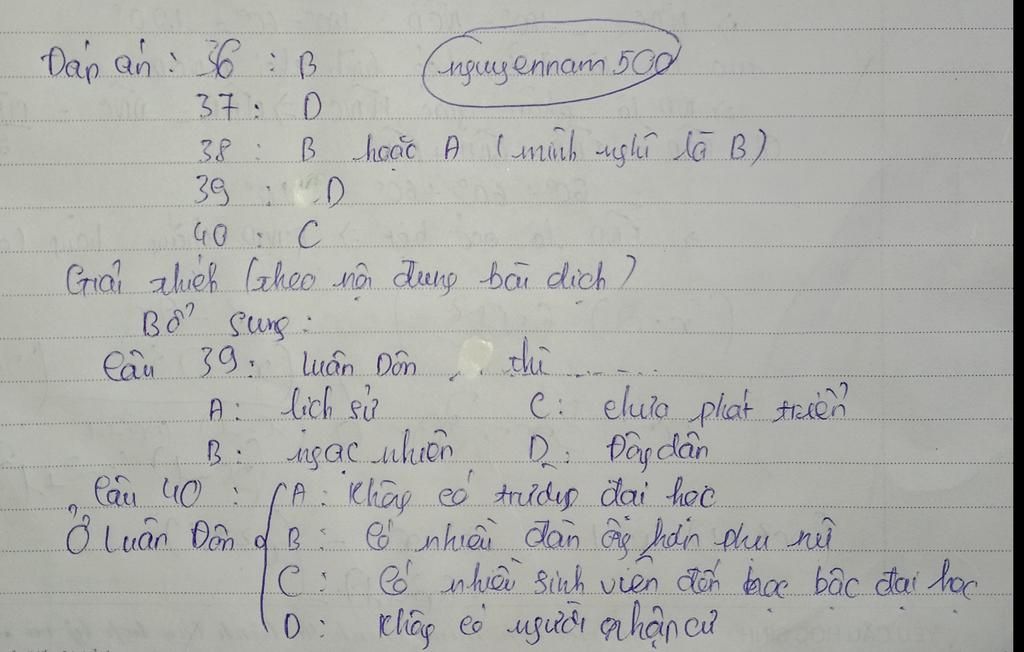 Đáp án : 36 : B nguyennam500
37 : D
38 : B hoặc A (mình nghĩ là B)
39 : D
40 : C
Giải thích (theo nội dung bài dịch)
Bổ sung :
Câu 39 : Luân Đôn ..... thì ......
A : lịch sử C : chưa phát triển
B : ngạc nhiên D : Đông dân
Câu 40 : A : Không có trường đại học
Ở Luân Đôn B : Có nhiều đàn ông hơn phụ nữ
C : Có nhiều sinh viên đến học bậc đại học
D : Không có người nhập cư